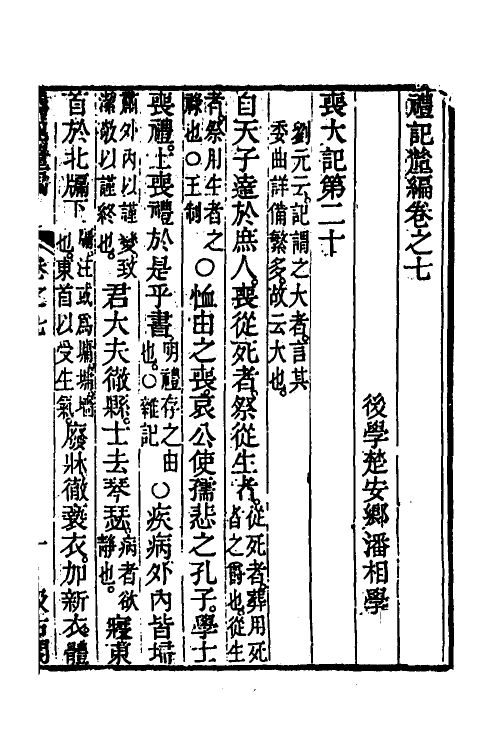 禮記釐編卷之七
後學楚安鄉潘相學
喪大記第二十
劉元云記謂之大者言其
委曲詳備繁多故云大也
自天子達於庶人喪從死者祭從生者從死者葬用死
者之爵也從生
者祭用生者之
祿也○王制
○恤由之喪哀公使孺悲之孔子學士
喪禮士喪禮於是乎書明禮存之由
也○雜記
○疾病外內皆埽
肅外內以謹變致
潔敬以謹終也
君大夫徹縣士去琴瑟病者欲
靜也
寢東
首於北牖下牖注或為墉墉墻
也東首以受生氣
廢牀徹褻衣加新衣體
卷之七
一
汲古閣